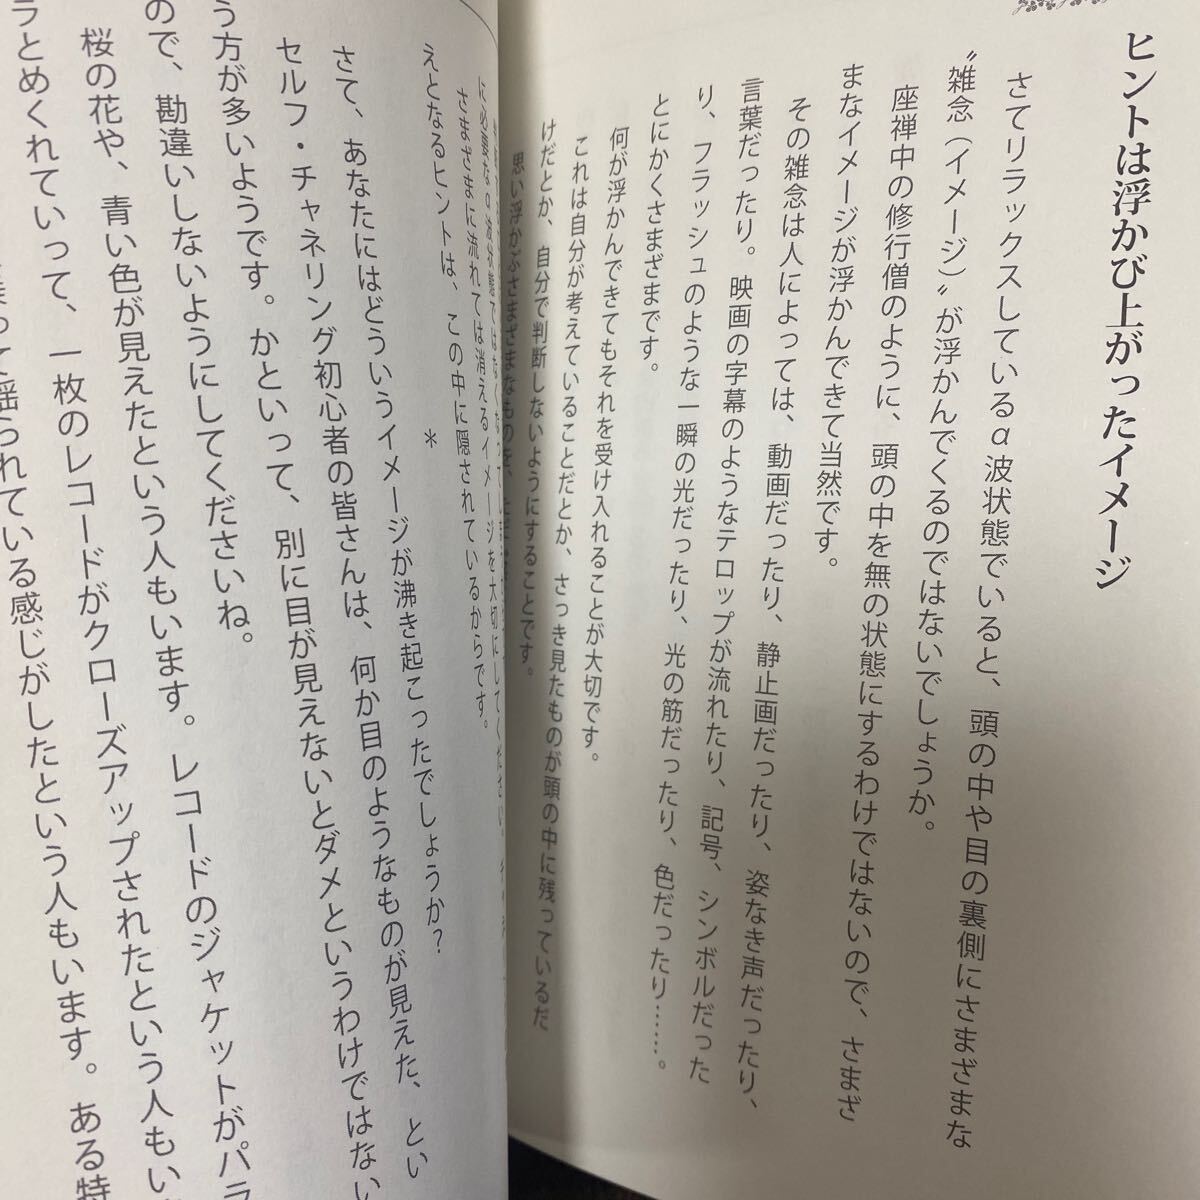 ヒントは浮かび上がったイメージ
さてリラックスしているα波状態でいると、頭の中や目の裏側にさまざまな
〝雑念（イメージ）〟が浮かんでくるのではないでしょうか。
座禅中の修行僧のように、頭の中を無の状態にするわけではないので、さまざ
まなイメージが浮かんできて当然です。
その雑念は人によっては、動画だったり、静止画だったり、姿なき声だったり、
言葉だったり。映画の字幕のようなテロップが流れたり、記号、シンボルだった
り、フラッシュのような一瞬の光だったり、光の筋だったり、色だったり……。
とにかくさまざまです。
何が浮かんできてもそれを受け入れることが大切です。
これは自分が考えていることだとか、さっき見たものが頭の中に残っているだ
けだとか、自分で判断しないようにすることです。
思い浮かぶさまざまなものを、ただ
に必要なα波状態ではなくなってしま
さまざまに流れては消えるイメージを大切にしてください。
えとなるヒントは、この中に隠されているからです。
＊
さて、あなたにはどういうイメージが沸き起こったでしょうか？
セルフ・チャネリング初心者の皆さんは、何か目のようなものが見えた、とい
う方が多いようです。かといって、別に目が見えないとダメというわけではない
ので、勘違いしないようにしてくださいね。
桜の花や、青い色が見えたという人もいます。レコードのジャケットがパラ
ラとめくれていって、一枚のレコードがクローズアップされたという人もい
って揺られている感じがしたという人もいます。ある特